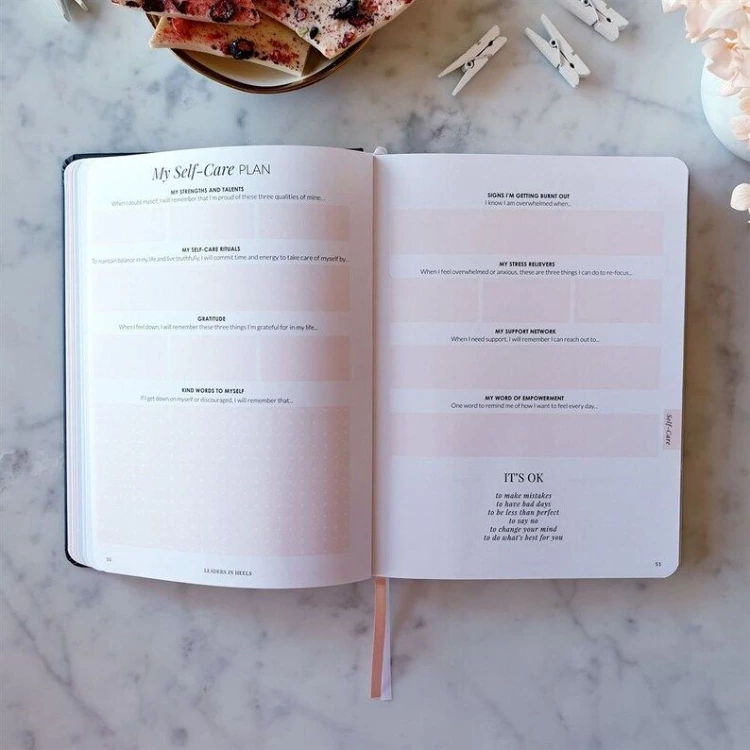 My Self-Care PLAN
MY STRENGTHS AND TALENTS
When I doubt myself, I will remember that I'm proud of these three qualities of mine...
MY SELF-CARE RITUALS
To maintain balance in my life and live truthfully, I will commit time and energy to take care of myself by...
GRATITUDE
When I feel down, I will remember these three things I'm grateful for in my life...
KIND WORDS TO MYSELF
If I get down on myself or discouraged, I will remember that...
LEADERS IN HEELS
SIGNS I'M GETTING BURNT OUT
I know I am overwhelmed when...
MY STRESS RELIEVERS
When I feel overwhelmed or anxious, these are three things I can do to re-focus...
MY SUPPORT NETWORK
When I need support, I will remember I can reach out to...
MY WORD OF EMPOWERMENT
One word to remind me of how I want to feel every day...
Self-Care
IT'S OK
to make mistakes
to have bad days
to be less than perfect
to say no
to change your mind
to do what's best for you
53